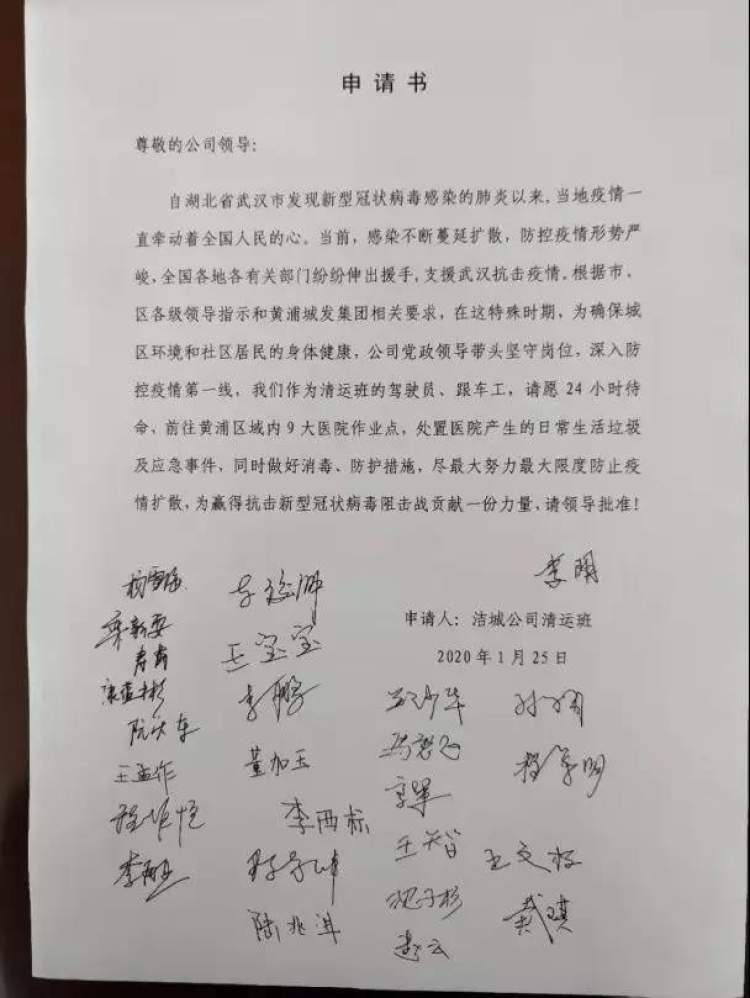 申请书
尊敬的公司领导：
自湖北省武汉市发现新型冠状病毒感染的肺炎以来，当地疫情一
直牵动着全国人民的心。当前，感染不断蔓延扩散，防控疫情形势严
峻，全国各地各有关部门纷纷伸出援手，支援武汉抗击疫情。根据市、
区各级领导指示和黄浦城发集团相关要求，在这特殊时期，为确保城
区环境和社区居民的身体健康，公司党政领导带头坚守岗位，深入防
控疫情第一线，我们作为清运班的驾驶员、跟车工，请愿 24 小时待
命、前往黄浦区域内 9 大医院作业点，处置医院产生的日常生活垃圾
及应急事件，同时做好消毒、防护措施，尽最大努力最大限度防止疫
情扩散，为赢得抗击新型冠状病毒阻击战贡献一份力量，请领导批准！
李明
申请人：洁城公司清运班
2020 年 1 月 25 日
王宝宝
李鹏
董加玉
李西标
王孟作
陆兆洋
王文权
戴琪
赵云